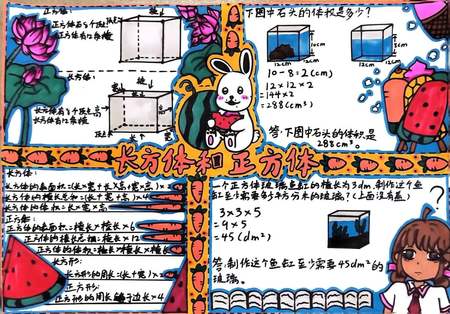 正方体有8个顶点
正方体有12条棱
顶点
棱
面
长方体:
长方体有8个顶点
长方体有12条棱
顶点
棱
下图中石头的体积是多少?
10cm
8cm
12cm
12cm
12cm
12cm
10-8=2(cm)
12×12×2
=144×2
=288(cm³)
答:下图中石头的体积是
288cm³。
长方体和正方体
长方体:
长方体的表面积=(长×宽+长×高+宽×高)×2
长方体的棱长总和=(长+宽+高)×4
长方体的体积=长×宽×高
正方体:
正方体的表面积=棱长×棱长×6
正方体的棱长总和=棱长×12
正方体的体积=棱长×棱长×棱长
长方形:
长方形的周长=(长+宽)×2
正方形:
正方形的周长=边长×4
一个正方体玻璃鱼缸的棱长为3dm,制作这个鱼
缸至少需要多少平方分米的玻璃?(上面没有盖)
3×3×5
=9×5
=45(dm²)
答:制作这个鱼缸至少需要45dm²的
玻璃。
?